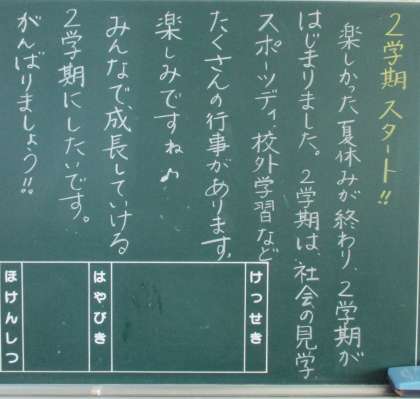 2学期 スタート!!
楽しかった夏休みが終わり、2学期が
はじまりました。2学期は、社会の見学
スポーツディ、校外学習など
たくさんの行事があります。
楽しみですね♪
みんなで、成長していける
2学期にしたいです。
がんばりましょう!!
けっせき
はやびき
ほけんしつ